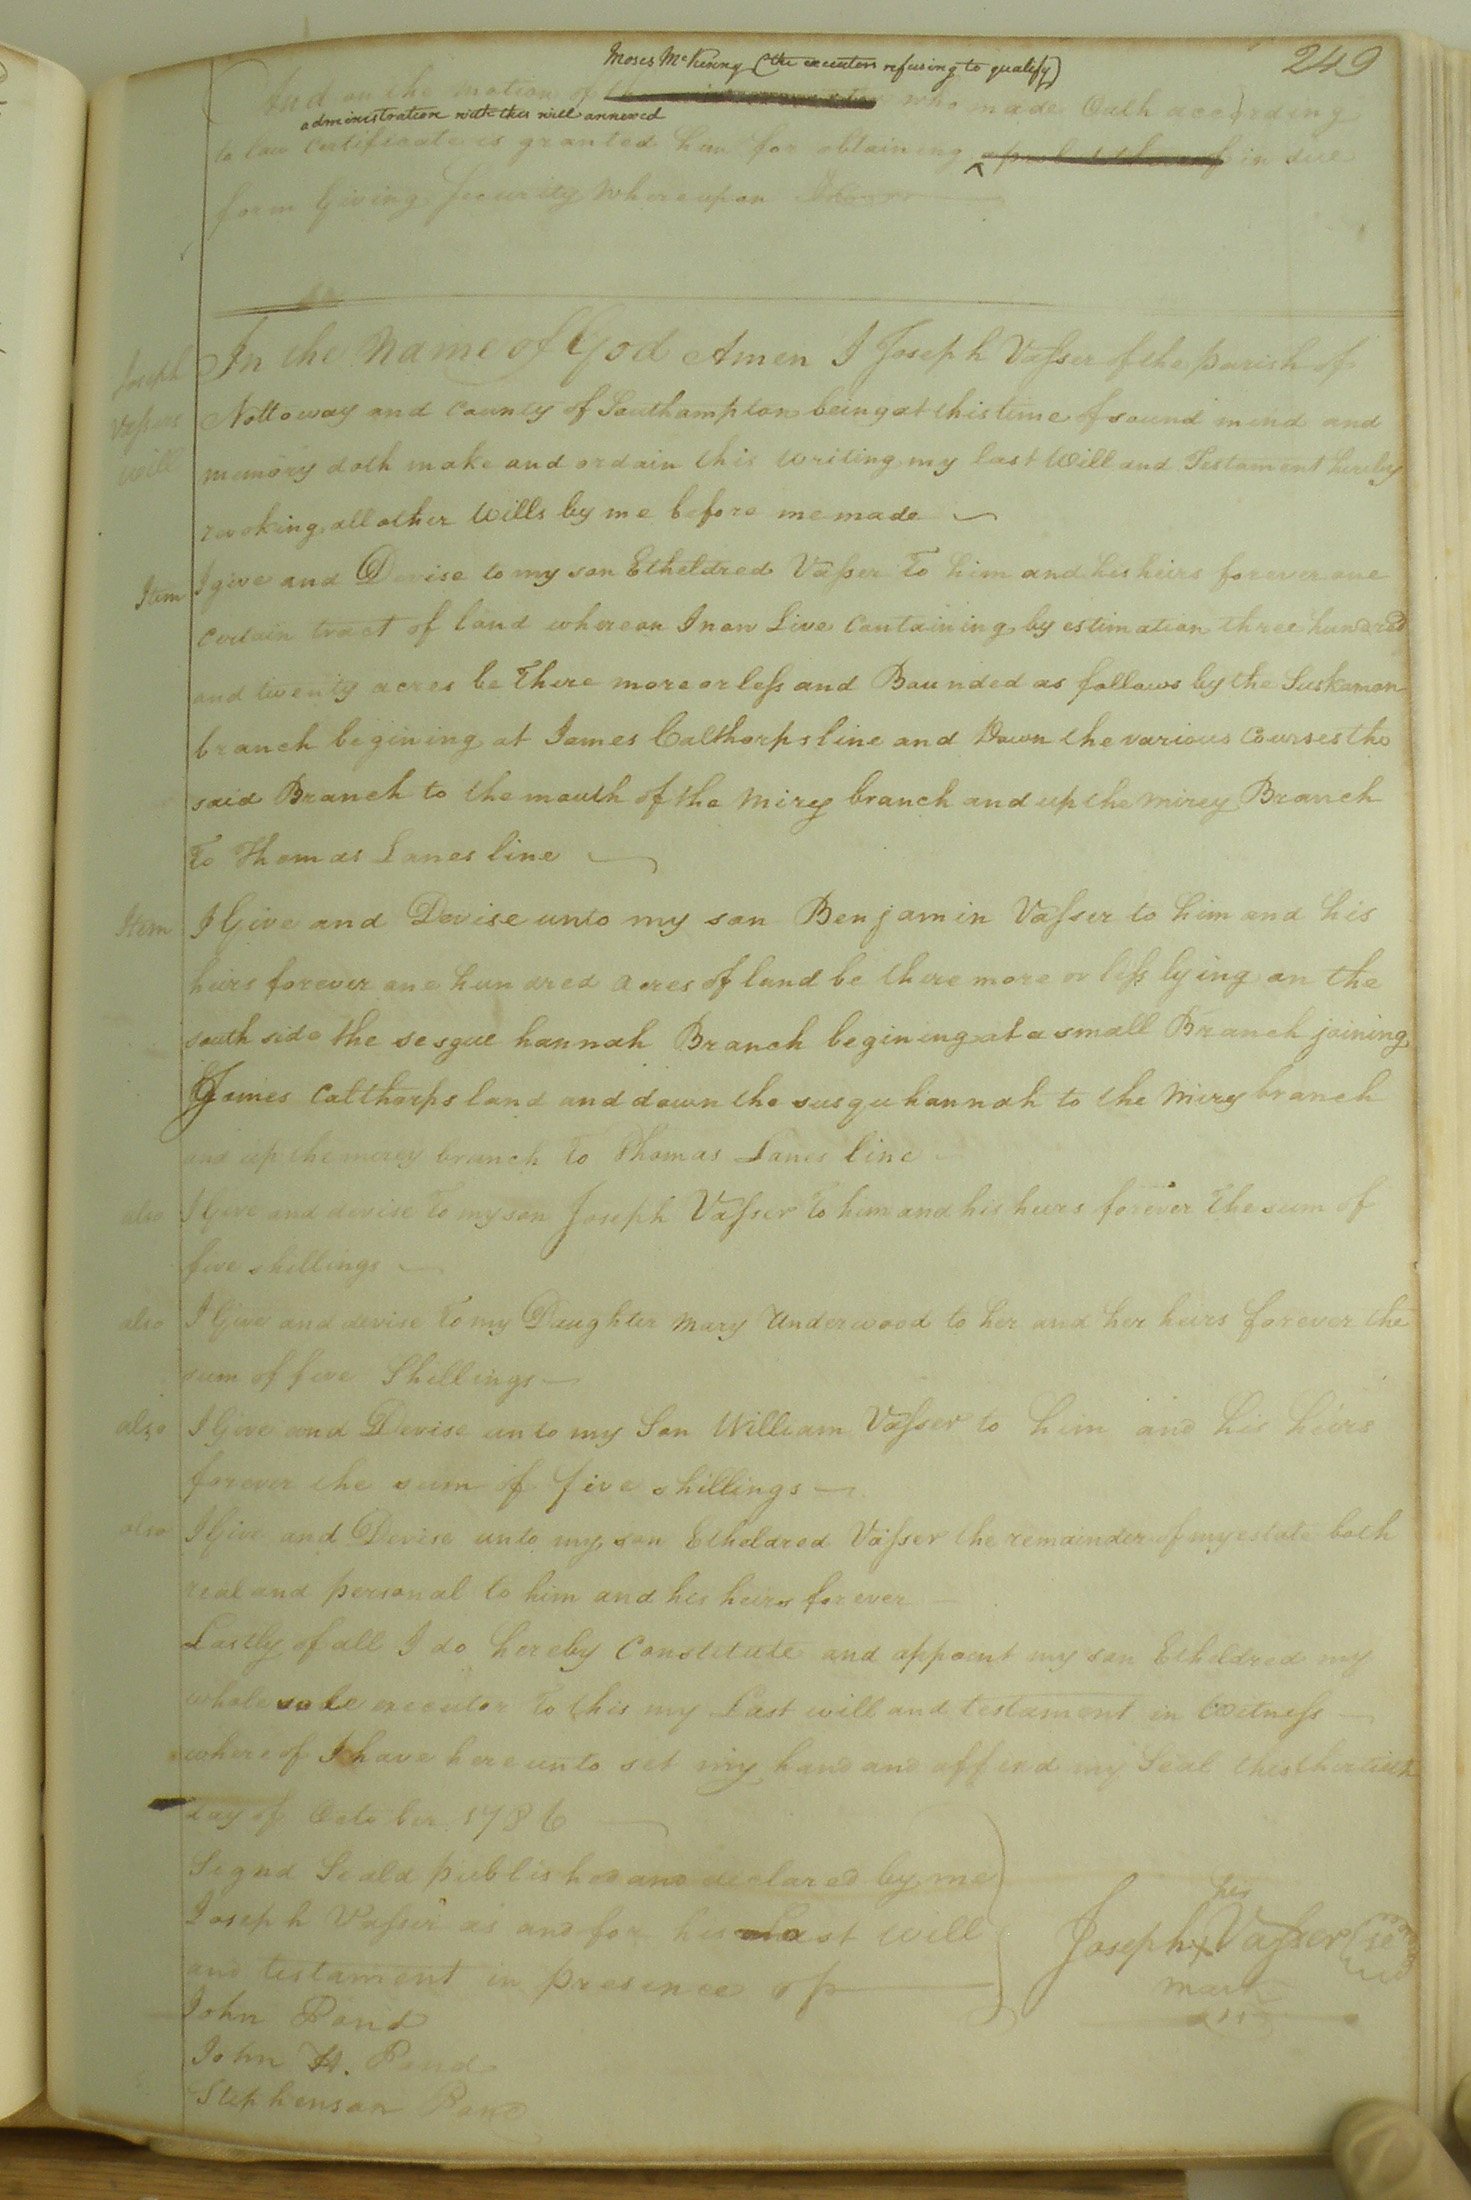 249
Moses McKenny (the executors refusing to qualify)
And on the motion of who made Oath according
administration with this will annexed
to law Certificate is granted him for obtaining ^ in due
form Giving Security Whereupon
Joseph Vaſsers will
In the Name of God Amen I Joseph Vaſser of the parish of
Nottoway and County of Southampton being at this time of sound mind and
memory doth make and ordain this writing my last Will and Testament hereby
revoking all other Wills by me before me made
Item I give and Devise to my son Etheldred Vaſser To him and his heirs forever one
certain tract of land whereon I now Live Containing by estimation three hundred
and twenty acres be there more or leſs and Bounded as follows by the Suskamon
branch begining at James Calthorps line and Down the various Courses tho
said Branch to the mouth of the Mirey branch and up the mirey Branch
To Thomas Lanes line
Item I Give and Devise unto my son Benjamin Vaſser to him and his
heirs forever one hundred acres of land be there more or leſs lying on the
south side the sesque hannah Branch begining at a small Branch joining
James Calthorps land and down the susquhannah to the Mirey branch
and up the mirey branch to Thomas Lanes line
also I Give and devise To my son Joseph Vaſser To him and his heirs forever The sum of
five shillings
also I Give and devise To my Daughter Mary Underwood to her and her heirs forever the
sum of five Shillings
also I Give and Devise unto my Son William Vaſser to him and his heirs
forever the sum of five shillings
also I Give and Devise unto my son Etheldred Vaſser the remainder of my estate both
real and personal to him and his heirs forever
Lastly of all I do hereby Constitute and appoint my son Etheldred my
whole sole executor To this my Last will and testament in Witneſs
where of I have here unto set my hand and affixd my Seal this thertieth
day of October 1786
Signd Seald publis hed and declared by me
Joseph Vaſser as and for his Last Will
and testament in presence of
his
Joseph x Vaſser
mark
John Pond
John H. Pond
Stephenson Pond